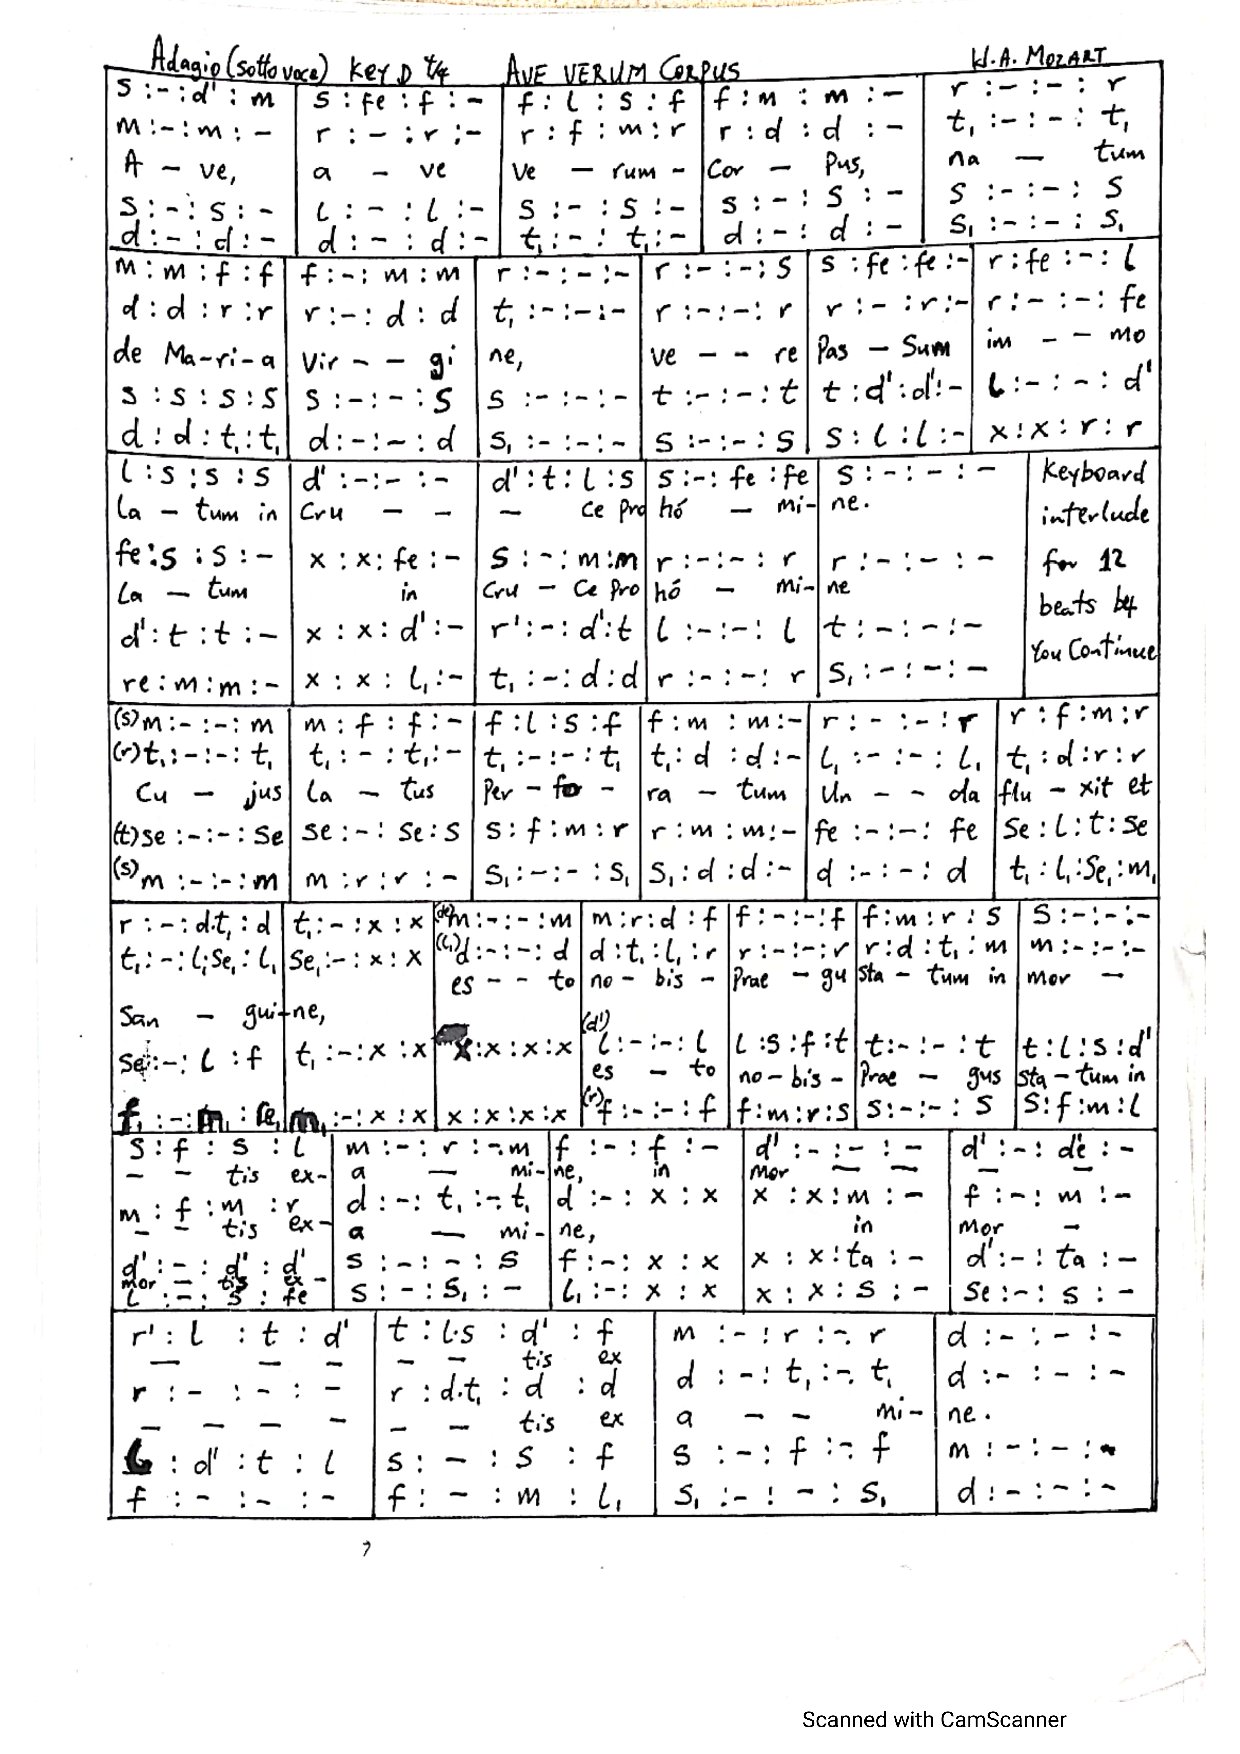 Adagio (sotto voce) Key D 4/4 AVE VERUM CORPUS W.A. MOZART
s :-: d' : m | s : fe : f : - | f : l : s : f | f : m : m : - | r :-:-: r
m :-: m : - | r : - : r :- | r : f : m : r | r : d : d : - | t, :-:-: t,
A - ve, | a - ve | Ve - rum - | Cor - Pus, | na - tum
s :-: s : - | l : - : l :- | s :- : s :- | s : - : s : - | s :-:-: s
d :- : d :- | d : - : d :- | t, :- : t, :- | d :- : d : - | s, :-:-: s,
m : m : f : f | f :-: m : m | r :-:-:- | r :-:-: s | s : fe : fe :- | r : fe :-: l
d : d : r : r | r :-: d : d | t, :-:-:- | r :-:-: r | r :- : r :- | r :-:-: fe
de Ma-ri-a | Vir - - gi | ne, | ve - - re | Pas - Sum | im - - mo
s : s : s : s | s :-:-: s | s :-:-:- | t :-:-: t | t : d' : d' :- | l :-:-: d'
d : d : t, : t, | d :-:-: d | s, :-:-:- | s :-:-: s | s : l : l :- | x : x : r : r
l : s : s : s | d' :-:-:- | d' : t : l : s | s :-: fe : fe | s :-:-:- | Keyboard
La - tum in | Cru - - | - Ce Pro | hó - mi- | ne. | interlude
fe : s : s : - | x : x : fe :- | s :-: m : m | r :-:-: r | r :-:-:- | for 12
La - tum | in | Cru - Ce Pro | hó - mi- | ne | beats b4
d' : t : t :- | x : x : d' :- | r' :-: d' : t | l :-:-: l | t :-:-:- | You Continue
re : m : m :- | x : x : l, :- | t, :-: d : d | r :-:-: r | s, :-:-:-
(s) m :-:-: m | m : f : f :- | f : l : s : f | f : m : m :- | r :-:-: r | r : f : m : r
(r) t, :-:-: t, | t, :-: t, :- | t, :-:-: t, | t, : d : d :- | l, :-:-: l, | t, : d : r : r
Cu - jus | La - tus | Per - fo - | ra - tum | Un - - da | flu - xit et
(t) se :-:-: se | se :-: se : s | s : f : m : r | r : m : m :- | fe :-:-: fe | se : l : t : se
(s) m :-:-: m | m : r : r : - | s, :-:-: s, | s, : d : d :- | d :-:-: d | t, : l, : se, : m,
r :-: d.t, : d | t, :-: x : x | (de) m :-:-: m | m : r : d : f | f :-:-: f | f : m : r : s | s :-:-:-
t, :-: l, : se, : l, | se, :-: x : x | (l,) d :-:-: d | d : t, : l, : r | r :-:-: r | r : d : t, : m | m :-:-:-
San - gui-ne, | es - - to | no - bis - | Prae - gu | sta - tum in | mor -
se :-: l : f | t, :-: x : x | x : x : x : x | (d') l :-:-: l | l : s : f : t | t :-:-: t | t : l : s : d'
es - to | no - bis - | Prae - gus | sta - tum in
f, :-: m, : re, | m, :-: x : x | x : x : x : x | (r) f :-:-: f | f : m : r : s | s :-:-: s | s : f : m : l
s : f : s : l | m :-: r :-. m | f :-: f :- | d' :-:-:- | d' :-: de' :-
- - tis ex- | a - mi- | ne, in | mor - - | - -
m : f : m : r | d :-: t, :-. t, | d :-: x : x | x : x : m :- | f :-: m :-
- - tis ex- | a - mi- | ne, | in | mor -
d' :-: d' : d' | s :-:-: s | f :-: x : x | x : x : ta :- | d' :-: ta :-
mor - tis ex -
l :-: s : fe | s :-: s, :- | l, :-: x : x | x : x : s :- | se :-: s :-
r' : l : t : d' | t : l.s : d' : f | m :-: r :-. r | d :-:-:-
- - - | - - tis ex
r :-:-:- | r : d.t, : d : d | d :-: t, :-. t, | d :-:-:-
- - - - | - - tis ex | a - - mi- | ne.
l : d' : t : l | s :-: s : f | s :-: f :-. f | m :-:-:-
f :-:-:- | f :-: m : l, | s, :-:-: s, | d :-:-:-
Scanned with CamScanner